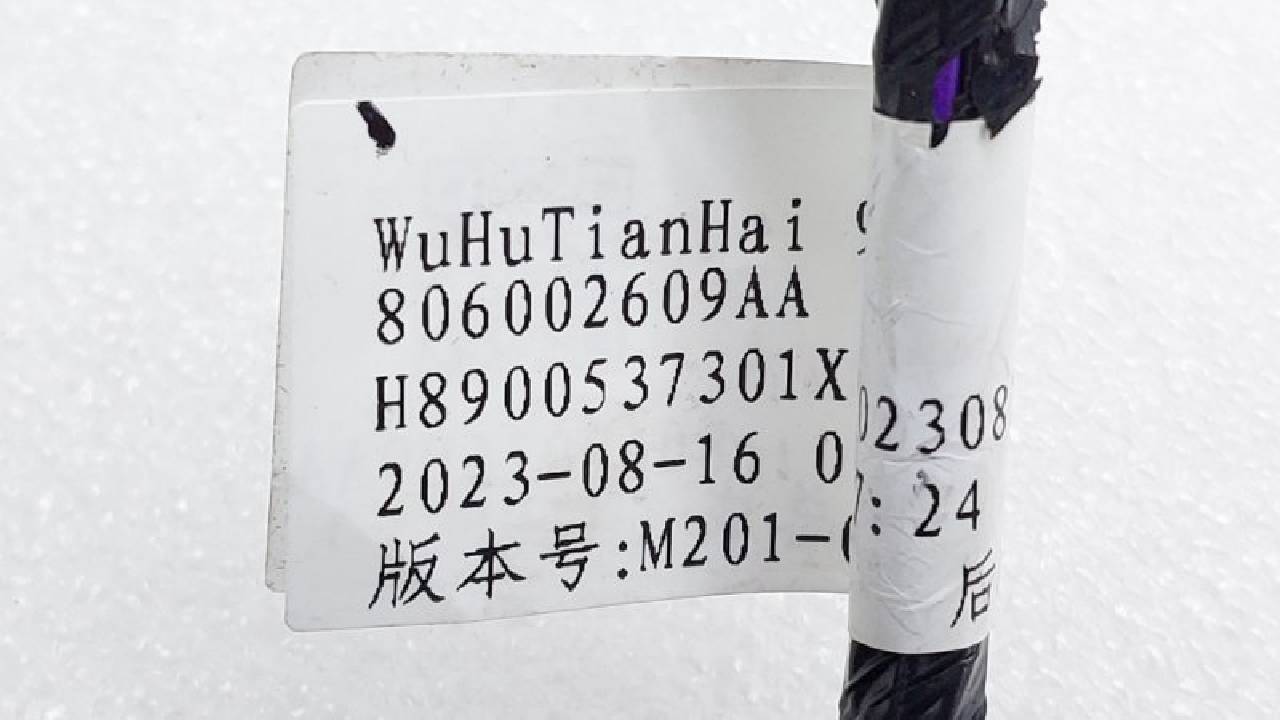 WuHuTianHai
806002609AA
H8900537301X 02308
2023-08-16 07:24
版本号:M201-
后